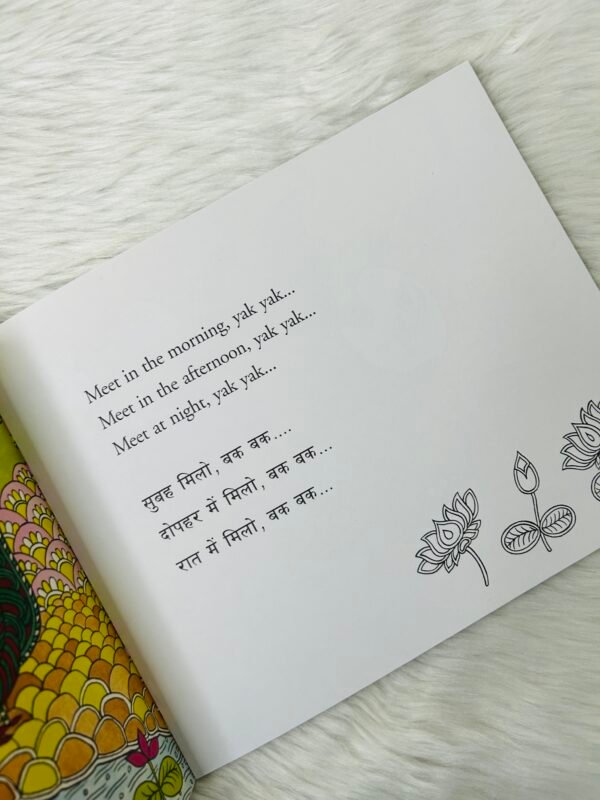 Meet in the morning, yak yak...
Meet in the afternoon, yak yak...
Meet at night, yak yak...
सुबह मिलो, बक बक....
दोपहर में मिलो, बक बक...
रात में मिलो, बक बक...